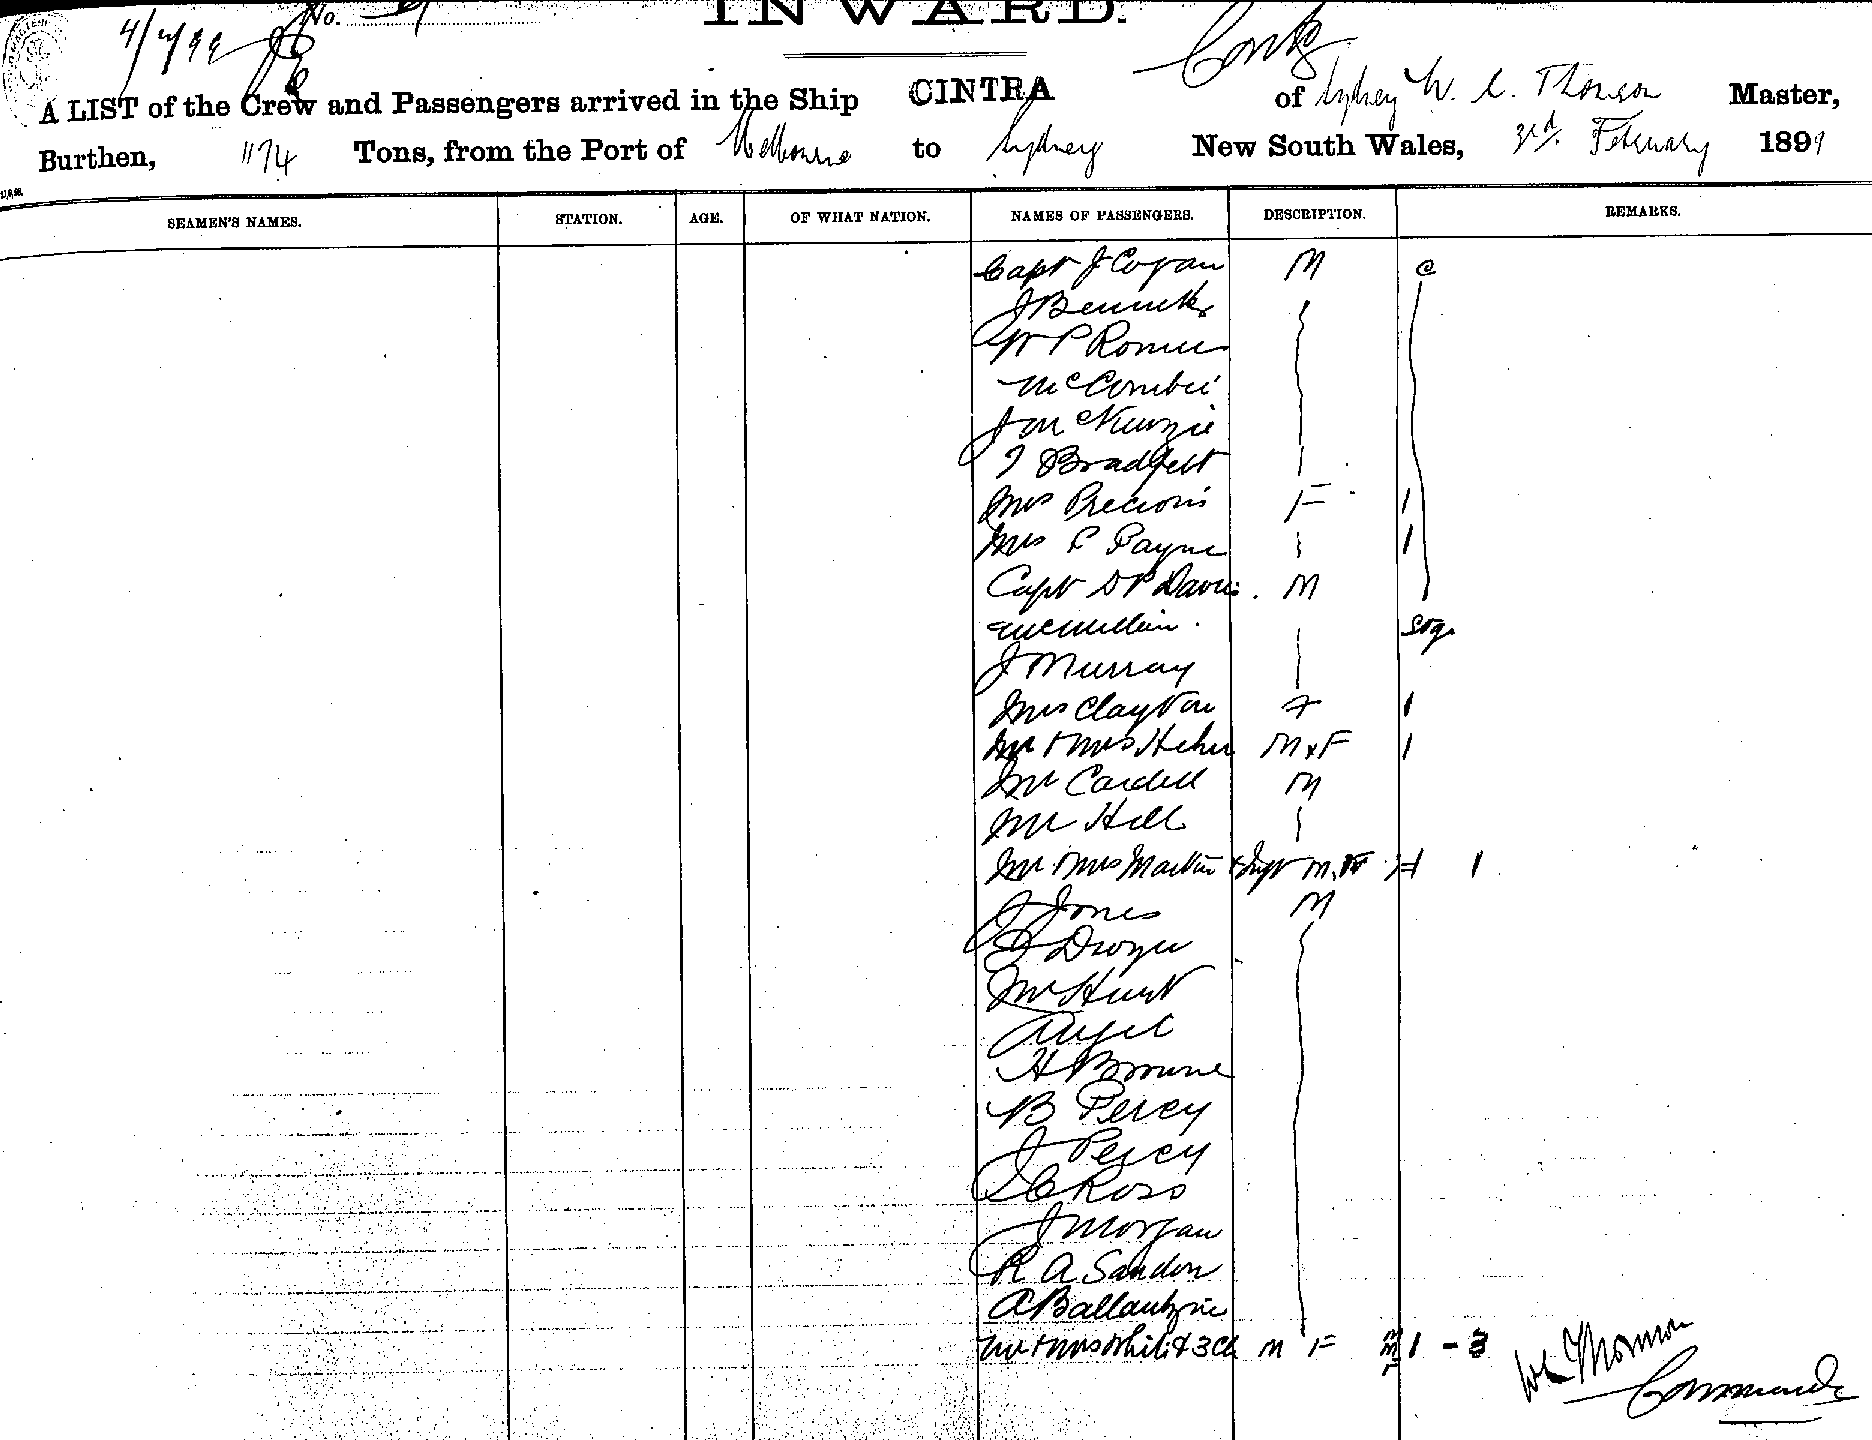 No.
INWARD.
4/2/99
A LIST of the Crew and Passengers arrived in the Ship CINTRA of Sydney W. C. Thomson Master,
Burthen, 1174 Tons, from the Port of Melbourne to Sydney New South Wales, 3rd. February 1899
SEAMEN'S NAMES. STATION. AGE. OF WHAT NATION. NAMES OF PASSENGERS. DESCRIPTION. REMARKS.
Capt J Cogan M C
J Bennett
W P Romer
McCombie
J McKenzie
Bradfelt
Mrs Precious F 1
Mrs P Payne 1
Capt D P Davis. M
McMillan. Stge
J Murray
Mrs Clayton F 1
Mr & Mrs Heher M & F 1
Mr Cardell M
Mr Hill
Mr & Mrs Martin & Inft M. F 1
J Jones M
J Dwyer
Mr Hunt
Angel
H Browne
B Percy
J Percy
C Ross
J Morgan
R A Sandon
A Ballantyne
Mr & Mrs White & 3 Ch M F M M F 1 - 3
W C Thomson
Commander